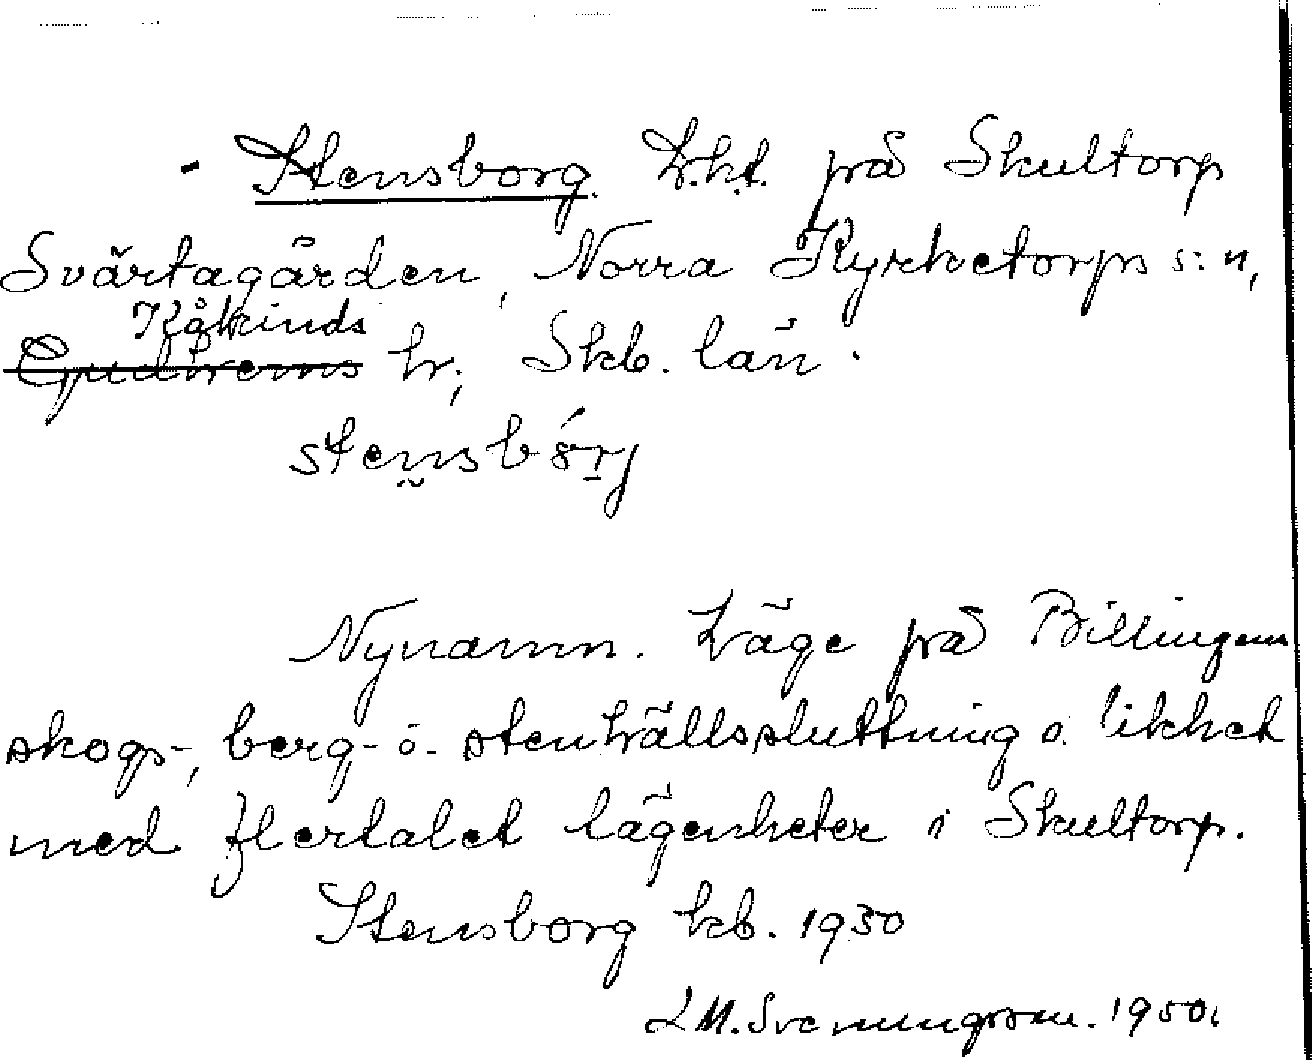 - Stensborg. L.ht. på Skultorp
Svärtagården, Norra Kyrketorps s:n,
Kåkinds
Gudhems hr, Skb. län.
Nynamn. Läge på Billingens
skogs-, berg- o. stenhällssluttning o. likhet
med flertalet lägenheter i Skultorp.
Stensborg kb. 1930
L M. Svenungsson. 1950.